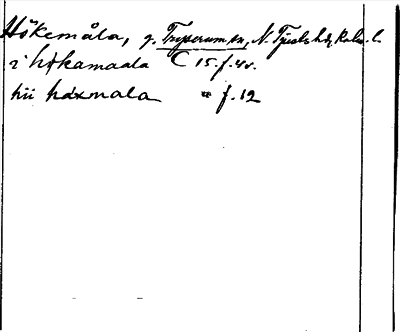 Hökemåla, g. Torperum sn, N. Tjusts hd, Kalm. l.
i høkamaala C 15. f. 4v.
hii høxmala " f. 12